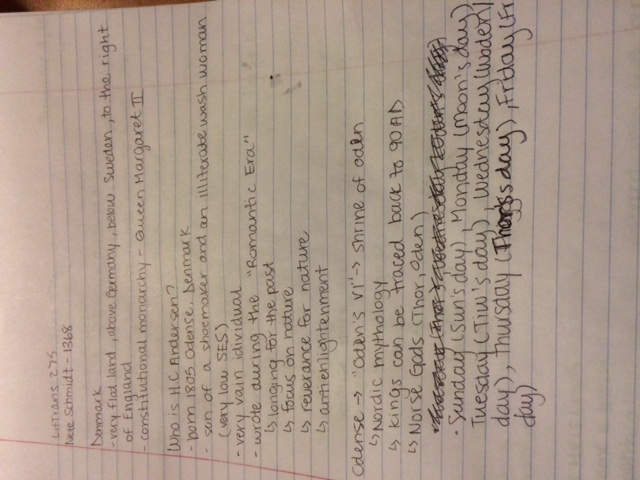 LitTrans 275
Nete Schmidt - 1368
Denmark
- very flad land, above Germany, below Sweden, to the right
of England
- constitutional monarchy - Queen Margaret II
Who is H.C Andersen?
- born 1805 Odense, Denmark
- son of a shoemaker and an illiterate wash woman
(very low SES)
- very vain idividual
- wrote during the "Romantic Era"
↳ longing for the past
↳ focus on nature
↳ reverance for nature
↳ antienlightenment
Odense → "Oden's VI" → shrine of oden
↳ Nordic mythology
↳ kings can be traced back to 90 AD
↳ Norse Gods (Thor, Oden)
· Sunday (Sun's day), Monday (Moon's day)
Tuesday (Tiw's day), Wednesday (Woden
day), Thursday (Thor's day), Friday (Fr
day)